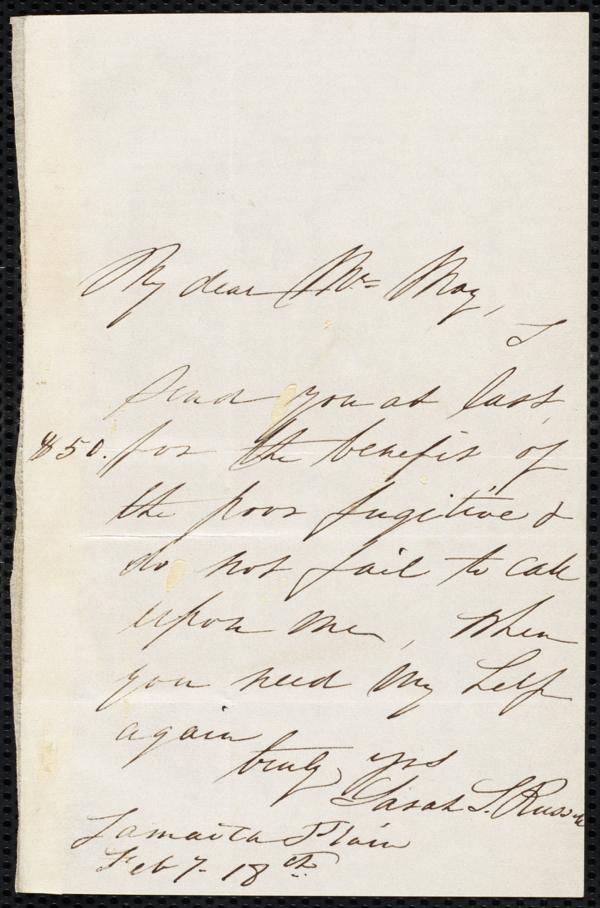 My dear Mr= May,
I
send you at last,
$50. for the benefit of
the poor fugitive &
do not fail to call
upon me, when
you need my help
again
truly yrs
Sarah S. Russell
Jamaica Plain
Feby- 18th